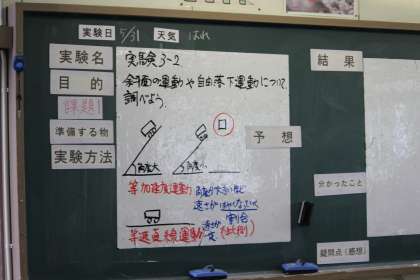 実験日 5/31 天気 はれ
実験名
実験3-2
目的
斜面の運動や自由落下運動について
調べよう。
課題
準備する物
実験方法
角度大
角度小
等加速度運動
等速直線運動
速さが
一定
割合
予想
結果
分かったこと
疑問点(感想)